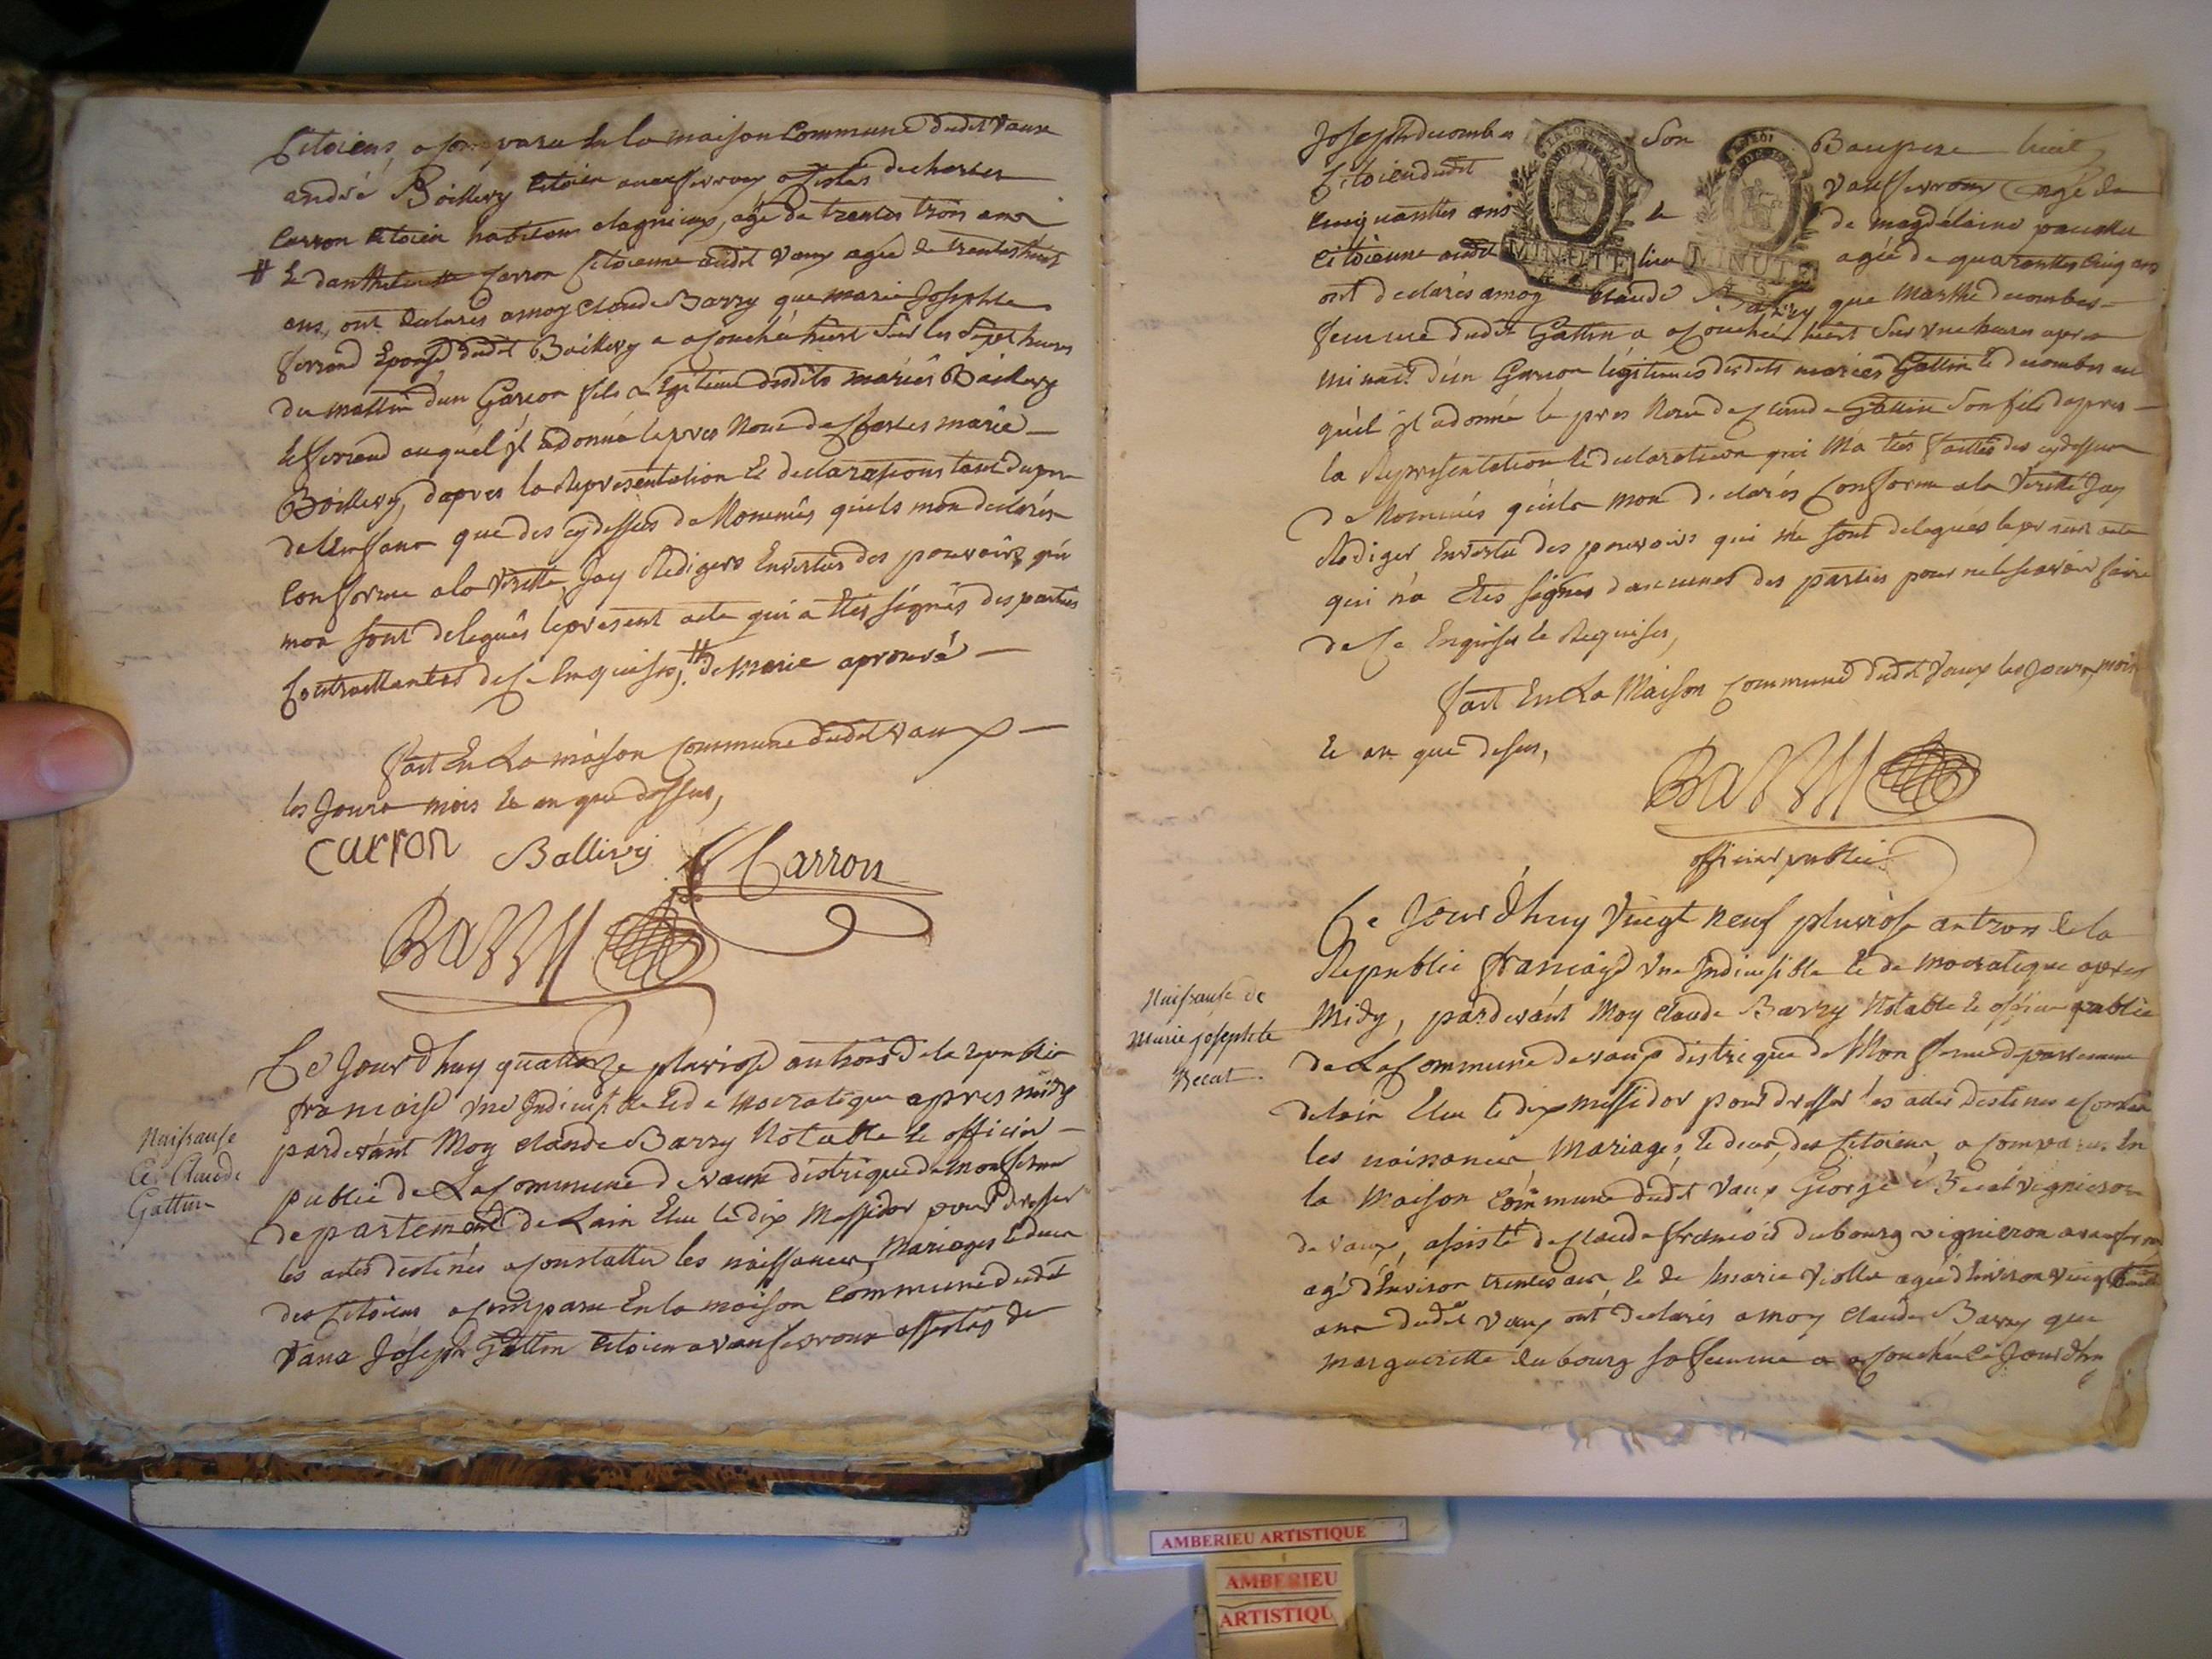 Citoiens, a comparu En la maison Commune dudit Vaux
andré Baillivy Citoien avauxfevroux assistés de charles
Carron Citoien habitant alagnieux, agé de trentes trois ans
# & d'anthelme Carron Citoienne audit Vaux agée de trentes huit
ans, ont declarés amoy Claude Barry que marie Josephte
ferrand Epouse dudit Baillivy a acouchée hier Sur les Sept heures
du mattin d'un Garcon fils legitime desdits mariés Baillivy
& ferrand auquel jl adonné le pres Nom de Charles marie
Baillivy, dapres la Representation & declarations tant du pere
de l'Enfant que des cydessus deNommés quils mon declarés
Conforme ala Veritté Jay Redigers Envertus des pouvoirs qui
mon sont delegués le present acte qui a Etes signés des parties
Contractantes de Ce Enquises, # de Marie aprouvé
fait En La maison Commune dudit Vaux
les Jours mois & an que dessus,
Carron Ballivy Carron
BARRY
Naissanse
de Claude
Gattin
Ce Jourd'huy quattorze pluviose antrois de la Republic
francaise une Indivisible & democratique apres midy
pardevant Moy Claude Barry Notable & officier
public de La Commune de Vaux distrique de Montferme
departement de Lain Elue le dix Messidor pour dresser
les actes destinés a Constatter les naissances, Mariages & deces
des Citoiens a comparu En la maison Commune dudit
Vaux Joseph Gattin Citoien a vauxfevroux assistés de
Joseph decombes Son Baupere
Citoien dudit Vauxfevroux agé de
Cinquanttes ans & de magdelaine
Citoienne audit lieu agée de quaranttes Cinq ans
MINUTE MINUTE
ont declarés amoy Claude Barry que Marthe decombes
femme dudit Gattin a acouchée hier Sur une heure apres
minuit d'un Garcon légitimes desdits mariés Gattin & decombes au
quel jl adonné le pres Nom de Claude Gattin Son fils dapres
la Representation & declaration qui Ma Etes faittes des cydessus
deNommés quils mon declarés Conforme ala Veritté Jay
Rediger Envertu des pouvoirs qui me sont delegués le present acte
qui n'a Etes signés d'aucunes des parties pour ne le scavoir faire
de Ce Enquises & Requises,
fait En La Maison Commune dudit Vaux les Jours, mois
& an que dessus,
BARRY
officier public
Naissanse de
Marie josephte
Becat.
Ce Jourd'huy Vingt neuf pluviose antrois de la
Republic francaise Une Indivisible & democratique apres
Midy, pardevant Moy Claude Barry Notable & officier public
de La Commune de vaux distrique de Montferme departement
de lain Elue le dix messidor pour dresser les actes destines a Constater
les naissances, Mariages, & deces, des Citoiens, a comparus En
la Maison Commune dudit Vaux George Becat vignieron
de vaux, assisté de Claude francois dubourg vignieron avauxfevroux
agé d'Environ trentes ans, & de Marie Viollet agée d'Environ vingt
ans dudit Vaux ont declarés amoy Claude Barry que
margueritte dubourg sa femme a acouchée ce Jourd'hu
AMBERIEU ARTISTIQUE
AMBERIEU
ARTISTIQU